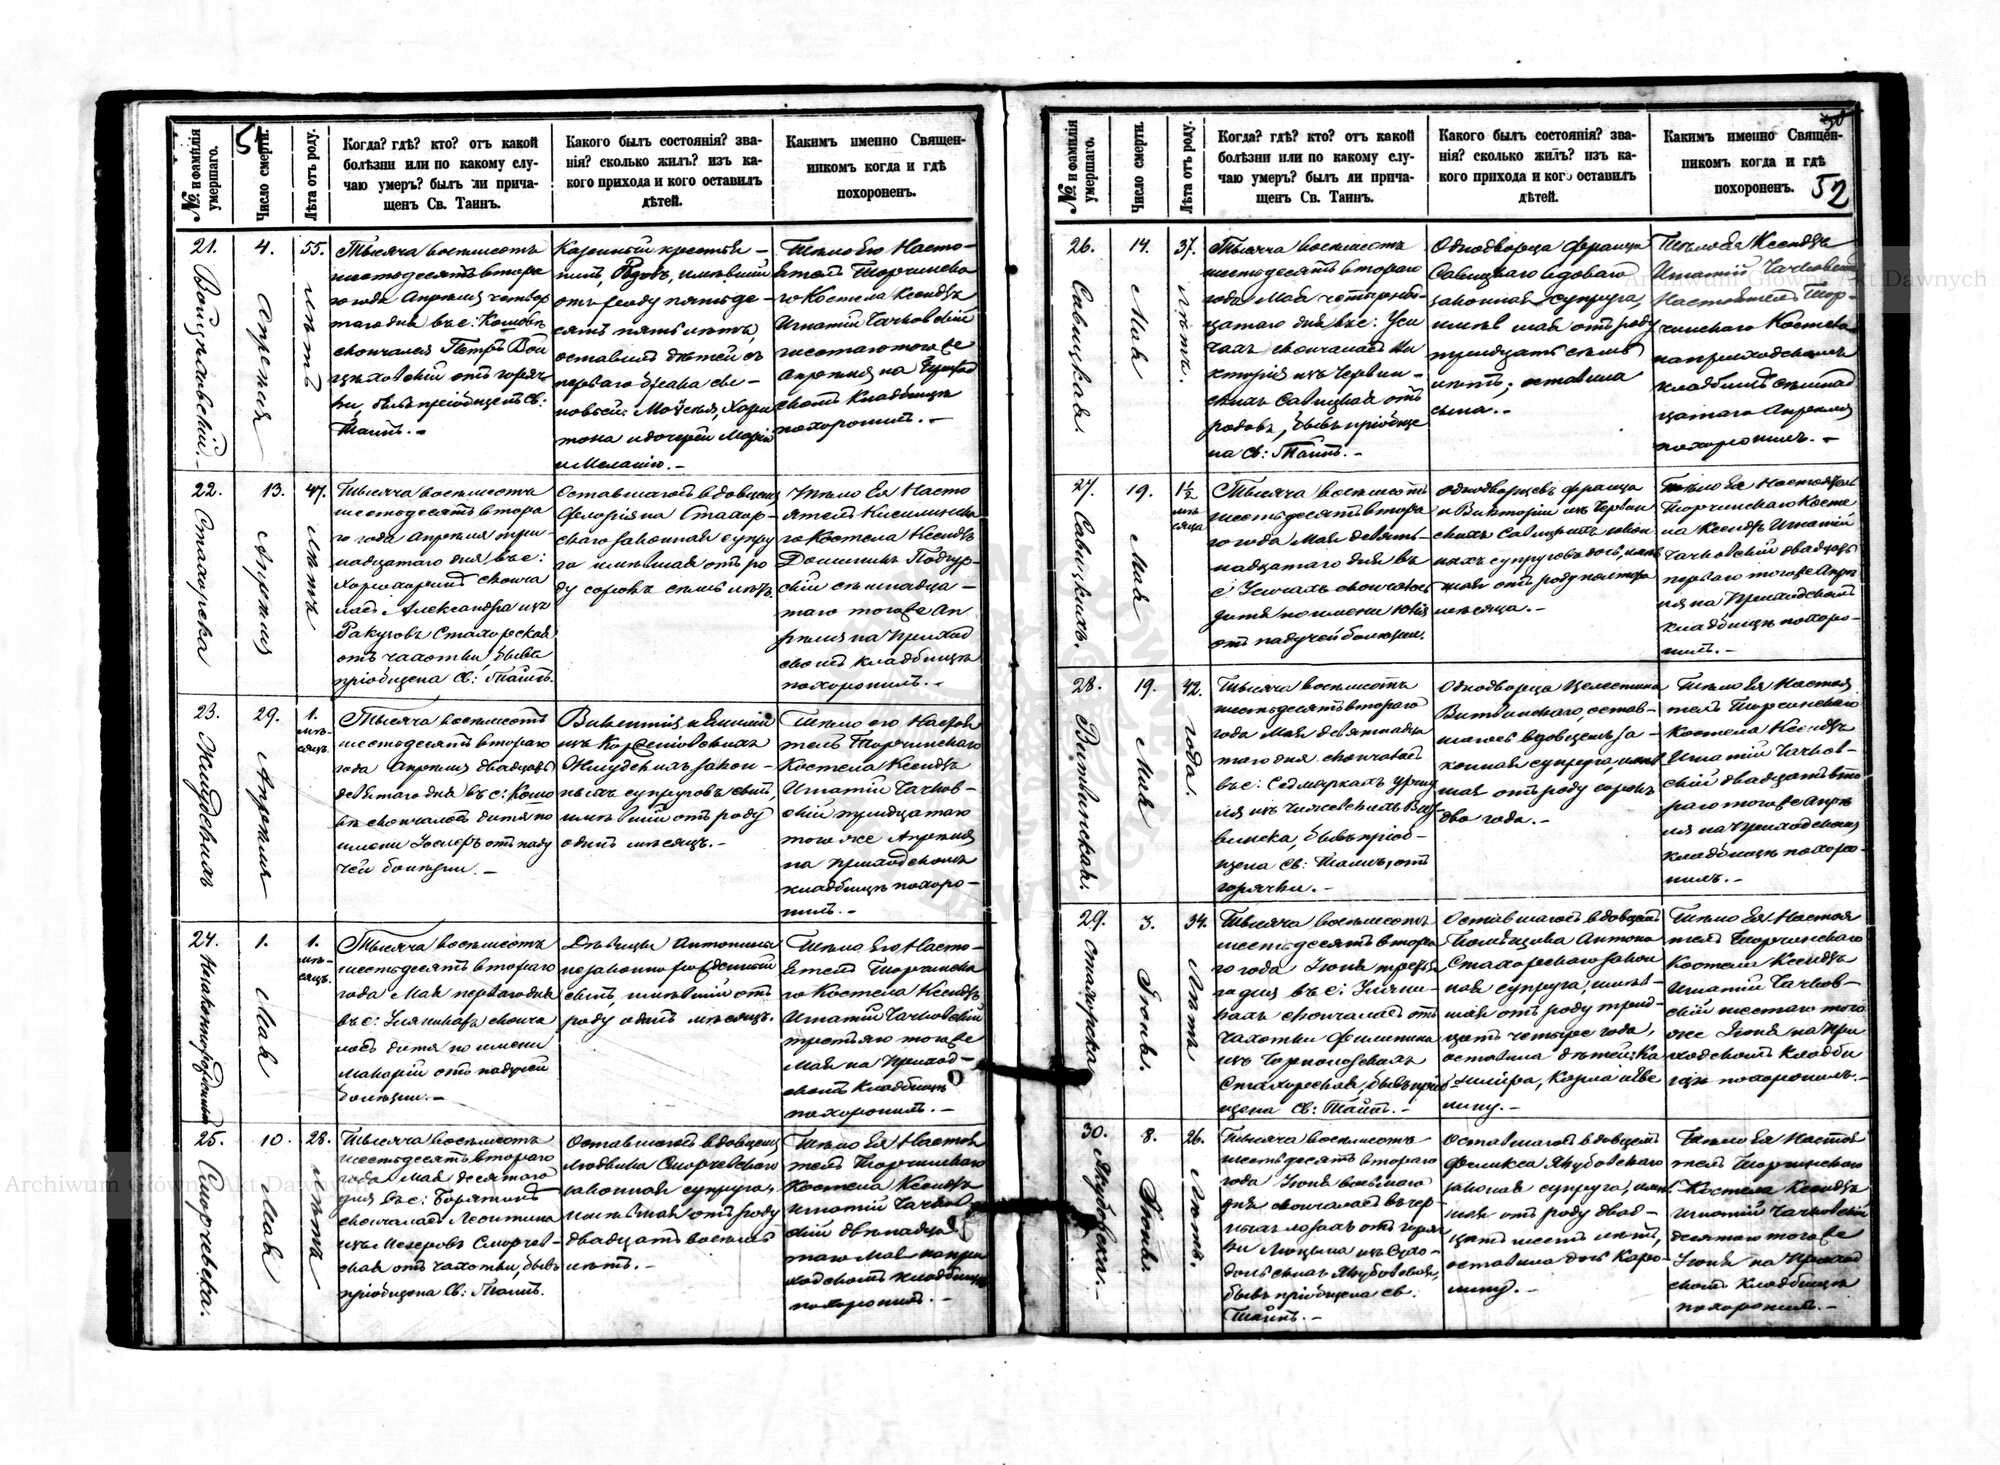 51
№ и фамилія умершаго.
Число смерти.
Лѣта отъ роду.
Когда? гдѣ? кто? отъ какой
болѣзни или по какому слу-
чаю умеръ? былъ ли прича-
щенъ Св. Таинъ.
Какого былъ состоянія? зва-
нія? сколько жилъ? изъ ка-
кого прихода и кого оставилъ
дѣтей.
Какимъ именно Священ-
никомъ когда и гдѣ
похороненъ.
21. Войцѣховскій.
4. Апрѣля
55. лѣтъ
Тысяча восемьсотъ
шестьдесятъ втора
го года Апрѣля четвер
таго дня въ с:
скончался Петръ Вой
цѣховскій отъ горяч
ки, бывъ пріобщенъ Св:
Таинъ.
Казенный крестья-
нинъ, Вдовъ, имѣвшій
отъ роду пятьде-
сятъ пять лѣтъ,
оставилъ дѣтей съ
перваго брака сы-
новей: Мойсея, Хари
тона и дочерей Марію
и Меланію.
Тѣло Его Насто-
ятель Торчинска
го Костела Ксендзъ
Игнатій Чачковскій
шестаго того же
Апрѣля на Приход
скомъ Кладбищѣ
похоронилъ.
22. Стахорска
13. Апрѣля
47. лѣтъ
Тысяча восемьсотъ
шестьдесятъ втора
го года Апрѣля три-
надцатаго дня въ с:
сконча
лась Александра изъ
Стахорская
отъ чахотки, бывъ
пріобщена Св: Таинъ.
Оставшагося вдовцемъ
Флоріяна Стахор-
скаго законная супру
га имѣвшая отъ ро
ду сорокъ семь лѣтъ.
Тѣло Ея Насто
ятель Киселинска
го Костела Ксендзъ
Доминикъ Подгур-
скій семнадца-
таго того же Ап
рѣля на Приход
скомъ кладбищѣ
похоронилъ.
23. Жмудскихъ
29. Апрѣля
1. мѣ-
сяцъ.
Тысяча восемьсотъ
шестьдесятъ втораго
года Апрѣля двадцать
девятаго дня въ с:
скончалось дитя по
имени Іосифъ отъ паду
чей болѣзни.
Викентія и Емиліи
изъ
Жмудскихъ закон-
ныхъ супруговъ сынъ,
имѣвшій отъ роду
одинъ мѣсяцъ.
Тѣло его Настоя
тель Торчинскаго
Костела Ксендзъ
Игнатій Чачков-
скій тридцатаго
того же Апрѣля
на приходскомъ
кладбищѣ похоро-
нилъ.
24. Незаконнорожденный
1. Мая
1. мѣ-
сяцъ.
Тысяча восемьсотъ
шестьдесятъ втораго
года Мая перваго дня
въ с: сконча
лось дитя по имени
Макарій отъ падучей
болѣзни.
Дѣвицы Антонины
незаконнорожденный
сынъ, имѣвшій отъ
роду одинъ мѣсяцъ.
Тѣло Его Насто-
ятель Торчинска
го Костела Ксендзъ
Игнатій Чачковскій
третьяго того же
Мая на Приход-
скомъ Кладбищѣ
похоронилъ.
25. Сморчевска.
10. Мая
28. лѣтъ
Тысяча восемьсотъ
шестьдесятъ втораго
года Мая десятаго
дня въ с:
скончалась Леонтина
изъ Сморчев-
ская отъ чахотки, бывъ
пріобщена Св: Таинъ.
Оставшагося вдовцемъ
Людвика Сморчевскаго
законная супруга,
имѣвшая отъ роду
двадцать восемь
лѣтъ.
Тѣло Ея Настоя
тель Торчинскаго
Костела Ксендзъ
Игнатій Чачков
скій двѣнадца
таго Мая на при
ходскомъ кладбищѣ
похоронилъ.
52
№ и фамилія умершаго.
Число смерти.
Лѣта отъ роду.
Когда? гдѣ? кто? отъ какой
болѣзни или по какому слу-
чаю умеръ? былъ ли прича-
щенъ Св. Таинъ.
Какого былъ состоянія? зва-
нія? сколько жилъ? изъ ка-
кого прихода и кого оставилъ
дѣтей.
Какимъ именно Священ-
никомъ когда и гдѣ
похороненъ.
26. Савицкая.
14. Мая
37. лѣтъ.
Тысяча восемьсотъ
шестьдесятъ втораго
года Мая четырнад-
цатаго дня въ с: Уси
чахъ скончалась Ви
кторія изъ Червин-
скихъ Савицкая отъ
родовъ, бывъ пріобще
на Св: Таинъ.
Однодворца Франца
Савицкаго вдоваго
законная супруга,
имѣвшая отъ роду
тридцать семь
лѣтъ; оставила
сына.
Тѣло Ея Ксендзъ
Игнатій Чачковскій
Настоятель Тор-
чинскаго Костела
на приходскомъ
кладбищѣ семнад
цатаго Апрѣля
похоронилъ.
27. Савицкихъ.
19. Мая
1½ мѣ-
сяца
Тысяча восемьсотъ
шестьдесятъ втора
го года Мая девять-
надцатаго дня въ
с: Усичахъ скончалось
дитя по имени Юлія
отъ падучей болѣзни.
Однодворцевъ Франца
и Викторіи изъ Червин
скихъ Савицкихъ закон
ныхъ супруговъ дочь, имѣв
шая отъ роду полтора
мѣсяца.
Тѣло Ея Настоятель
Торчинскаго Косте
ла Ксендзъ Игнатій
Чачковскій двадцать
перваго того же Апрѣ
ля на Приходскомъ
кладбищѣ похоро-
нилъ.
28. Витвинская.
19. Мая
42. года.
Тысяча восемьсотъ
шестьдесятъ втораго
года Мая девятнадца
таго дня скончалась
въ с: Седмяркахъ Уршу
ля изъ Вит-
винска, бывъ пріоб-
щена Св: Таинъ, отъ
горячки.
Однодворца Целестина
Витвинскаго, остав-
шагося вдовцемъ за-
конная супруга, имѣв
шая отъ роду сорокъ
два года.
Тѣло Ея Настоя
тель Торчинскаго
Костела Ксендзъ
Игнатій Чачков-
скій двадцать вто
раго того же Апрѣ
ля на Приходскомъ
кладбищѣ похоро-
нилъ.
29. Стахорска.
3. Іюня.
34. лѣтъ
Тысяча восемьсотъ
шестьдесятъ втора
го года Іюня третья
го дня въ с:
скончалась отъ
чахотки Филипина
изъ
Стахорская, бывъ пріоб
щена Св: Таинъ.
Оставшагося вдовцемъ
Помѣщика Антона
Стахорскаго закон
ная супруга, имѣв-
шая отъ роду трид-
цать четыре года,
оставила дѣтей: Ка
зимира, Карла и Еве
лину.
Тѣло Ея Настоя
тель Торчинскаго
Костела Ксендзъ
Игнатій Чачков-
скій шестаго того
же Іюня на При
ходскомъ Кладби
щѣ похоронилъ.
30. Якубовска.
8. Іюня.
26. лѣтъ.
Тысяча восемьсотъ
шестьдесятъ втораго
года Іюня восьмаго
дня скончалась въ Чер
ныхъ лозахъ отъ горяч
ки Люцына изъ Сухо-
дольскихъ Якубовская,
бывъ пріобщена Св.
Таинъ.
Оставшагося вдовцемъ
Феликса Якубовскаго
законая супруга, имѣв
шая отъ роду двад-
цать шесть лѣтъ,
оставила дочь Каро-
лину.
Тѣло Ея Настоя
тель Торчинскаго
Костела Ксендзъ
Игнатій Чачковскій
десятаго того же
Іюня на Приход
скомъ Кладбищѣ
похоронилъ.
Archiwum Główne Akt Dawnych
Archiwum Główne Akt Dawnych